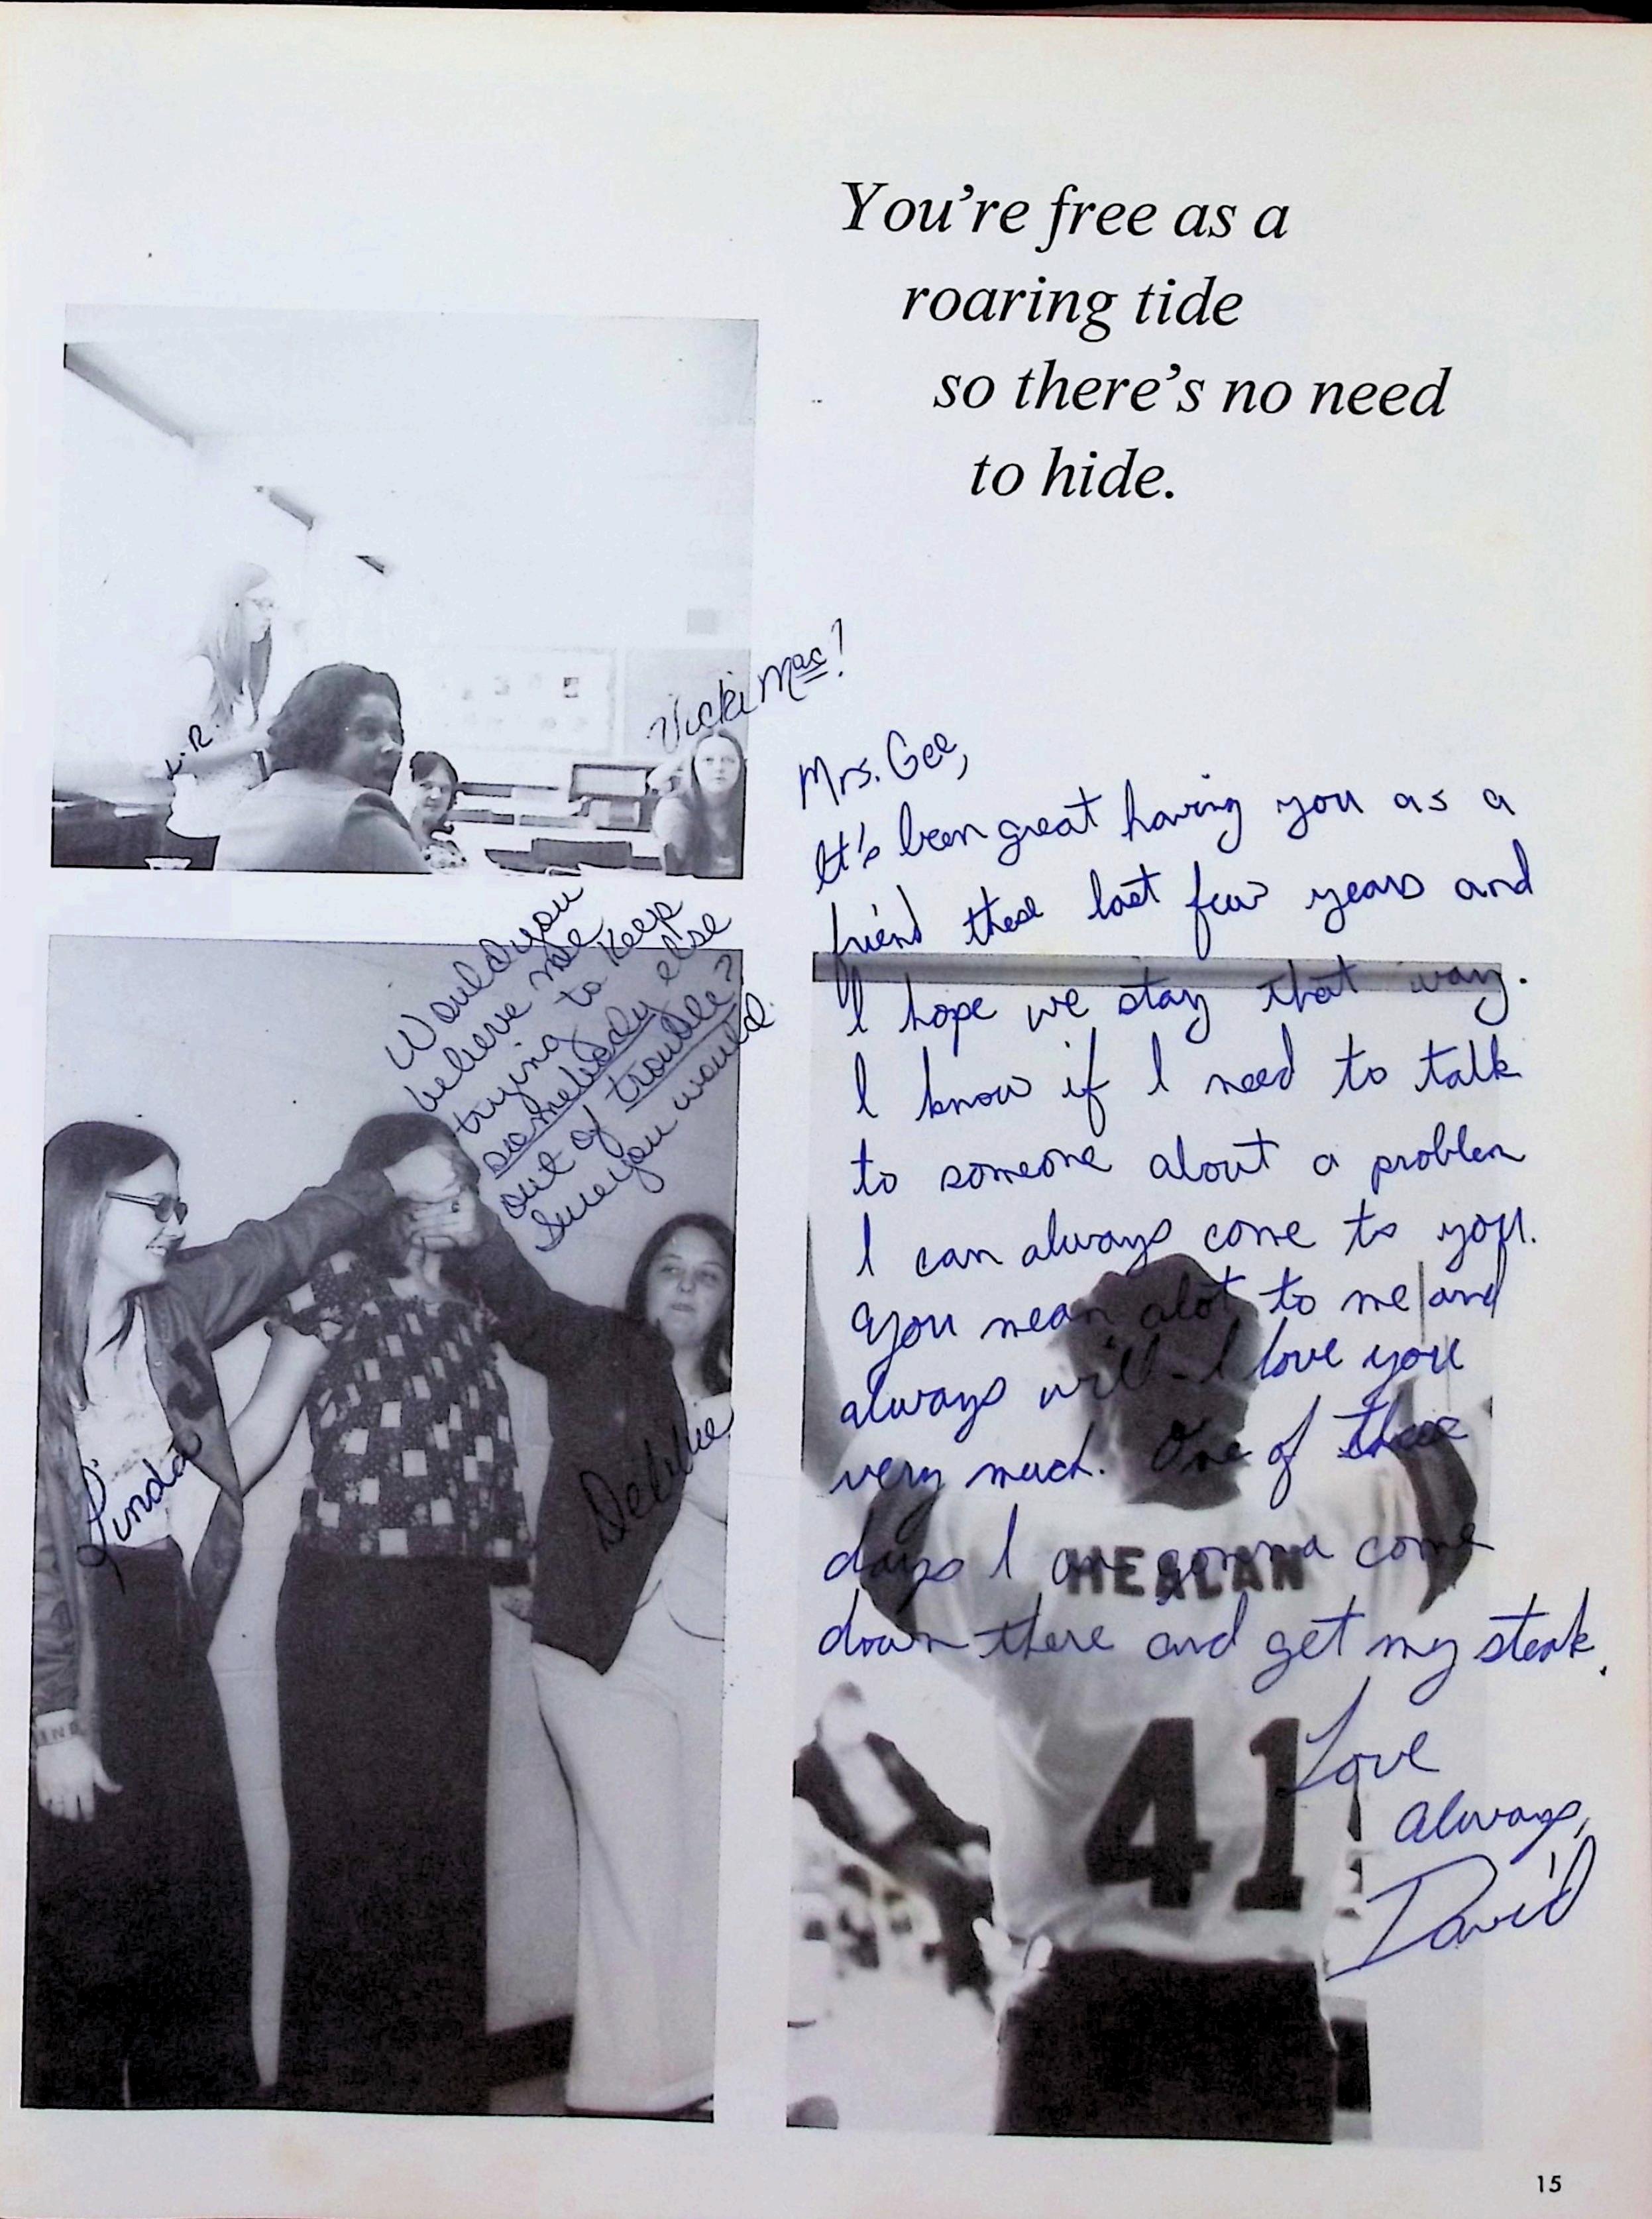 You're free as a
roaring tide
so there's no need
to hide.
Vicki Mac!
L.R.
Mrs. Gee,
It's been great having you as a
friend these last few years and
I hope we stay that way.
I know if I need to talk
to someone about a problem
I can always come to you.
You mean alot to me and
always will. I love you
very much. One of these
days I am gonna come
down there and get my steak.
Love
always,
David
Would you
believe me
trying to keep
somebody else
out of trouble?
Sure you would.
Linda
Debbie
HEALAN
41
15